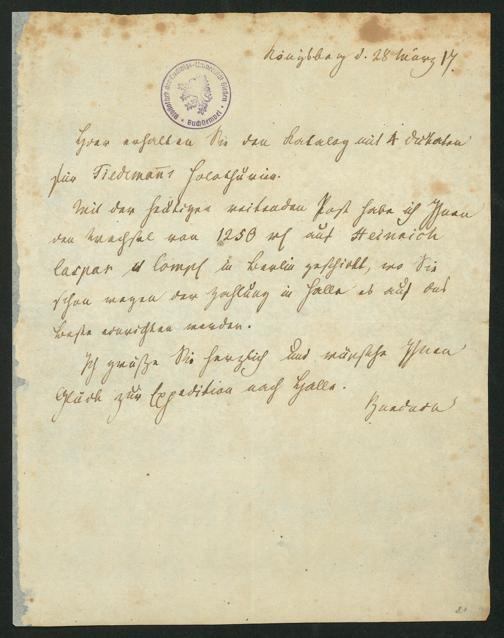 Königsberg d. 28 März 17.
Bibliothek der Ludwigs-Universität Gießen
Buchstempel
Hier erhalten Sie den Katalog mit 4 Dukaten
für Tiedemanns Holothurie.
Mit der heutigen reitenden Post habe ich Ihnen
den Wechsel von 1250 rh auf Heinrich
Caspar & Comp in Berlin geschickt, wo Sie
schon wegen der Zahlung in Halle es auf das
Beste einrichten werden.
Ich grüße Sie herzlich und wünsche Ihnen
Glück zur Expedition nach Halle.
Burdach